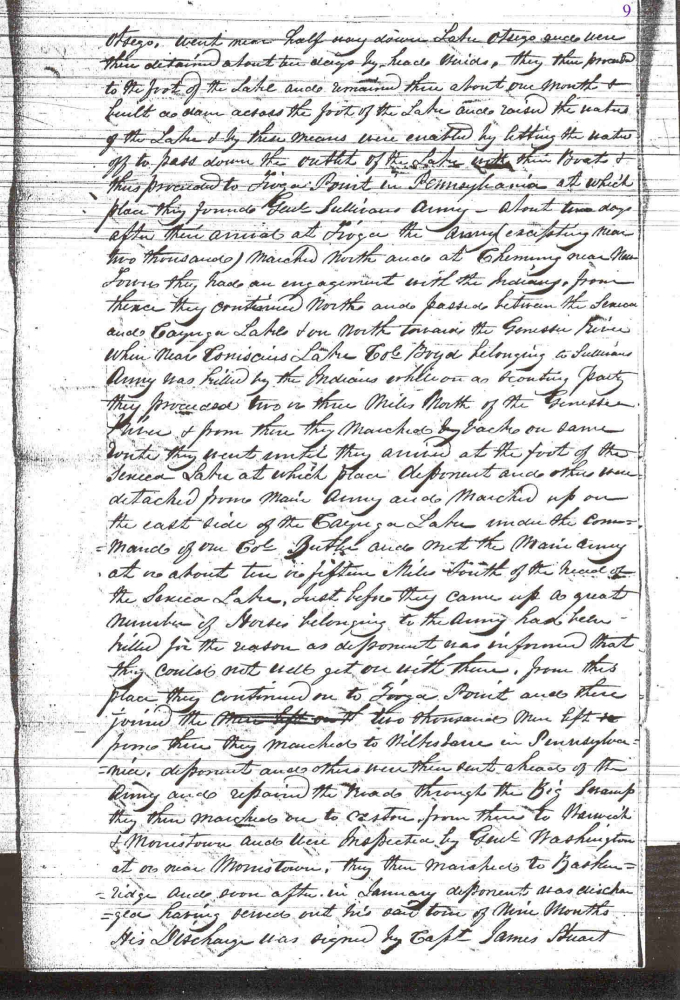 9
Otsego, went near half way down Lake Otsego and were
then detained about ten days by head winds, they then proceeded
to the foot of the Lake and remained there about one month &
built a dam across the foot of the Lake and raised the water
of the Lake & by these means were enabled by letting the water
off to pass down the outlet of the Lake with their Boats &
thus proceeded to Tioga Point in Pennsylvania at which
place they found Genl. Sullivans Army – about two days
after their arrival at Tioga the Army (excepting near
two thousand) marched North and at Chemung near New
Town they had an engagement with the Indians, from
thence they continued North and passed between the Seneca
and Cayuga Lake & on North towards the Genessee River
when near Coniscius Lake Col. Boyd belonging to Sullivans
Army was killed by the Indians while on a scouting party
they proceeded two or three Miles North of the Genessee
River & from there they marched by back on same
route they went until they arrived at the foot of the
Seneca Lake at which place deponent and others were
detached from main Army and marched up on
the east side of the Cayuga Lake under the com=
=mand of one Col. Butler and met the Main Army
at or about ten or fifteen Miles South of the head of
the Seneca Lake, Just before they came up a great
number of Horses belonging to the Army had been
killed for the reason as deponent was informed that
they could not well get on with them, from this
place they continued on to Tioga Point and there
joined the Men left on th two thousand Men left
from there they marched to Wilksbare in Pennsylva=
=nia, deponent and others were then sent ahead of the
Army and repaired the roads through the Big Swamp
they then marched on to Easton, from there to Warwick
& Morristown and were Inspected by Genl. Washington
at or near Morristown, they then marched to Basken=
=ridge and soon after in January deponent was dischar
=ged having served out his said tour of Nine Months
His Discharge was signed by Capt. James Stuart